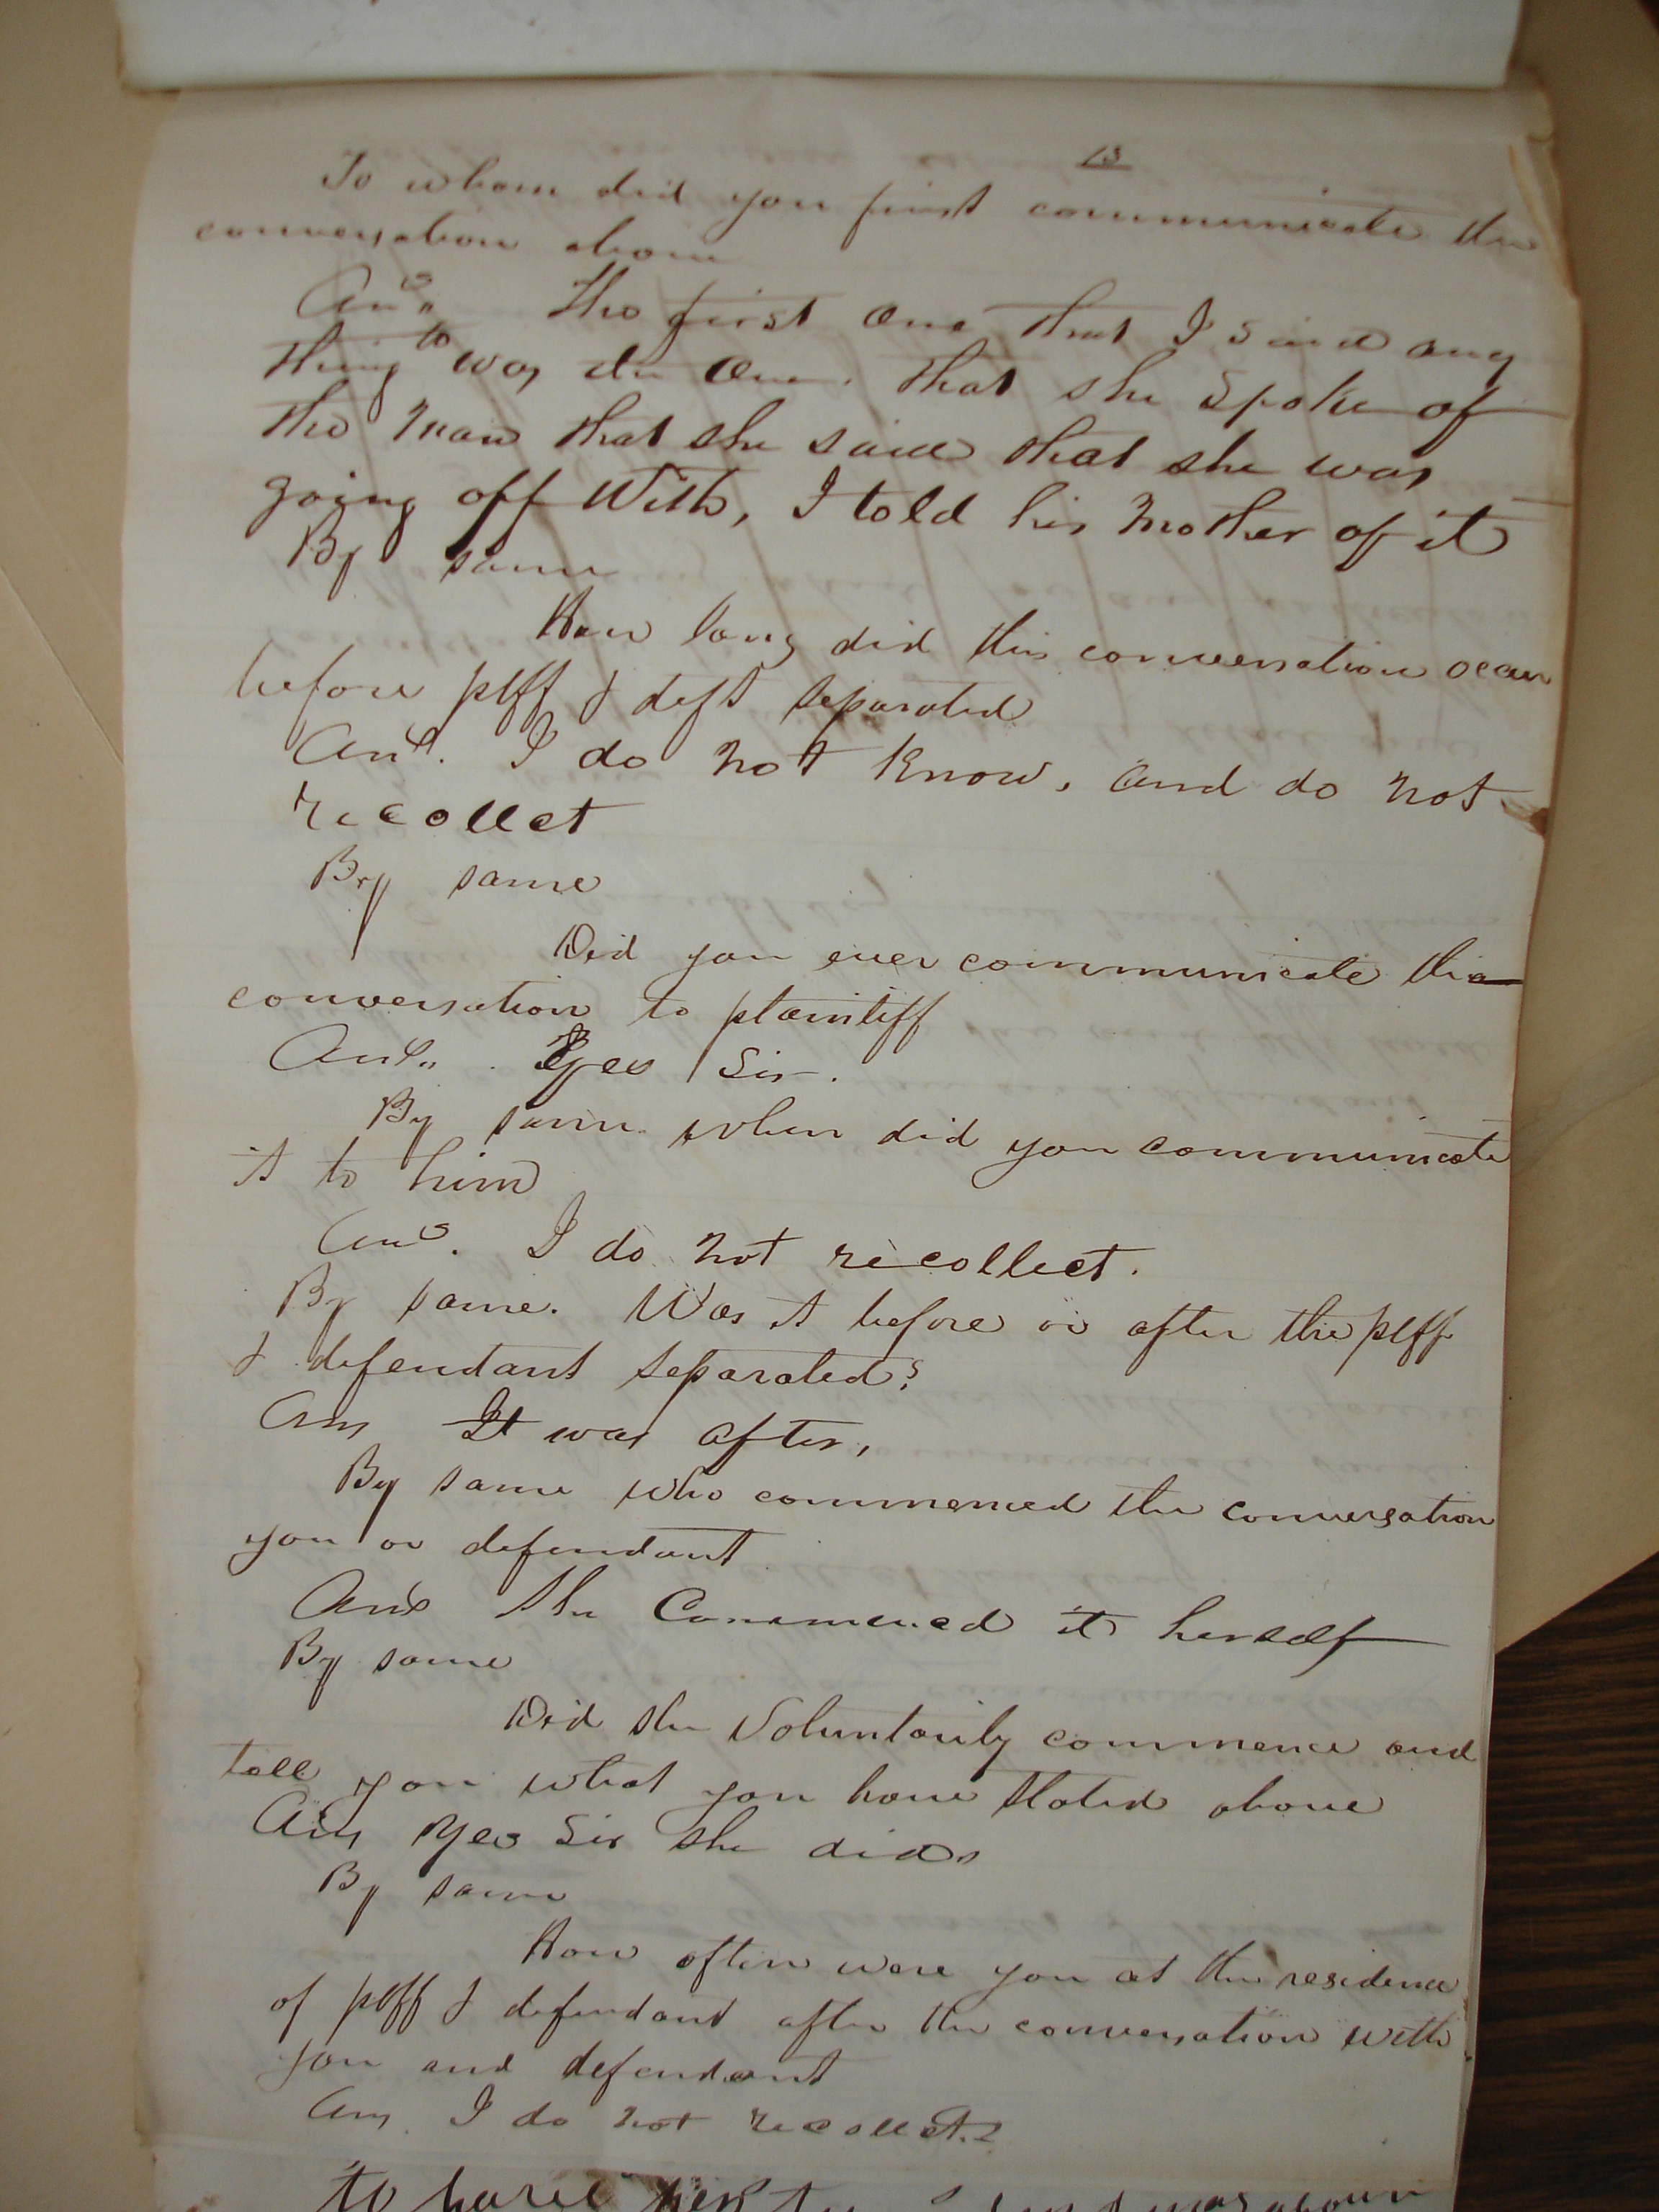 15
To whom did you first communicate the
conversation above
Ans. The first one that I said any
thing to was the one. that she spoke of
the man that she said that she was
going off With, I told his mother of it
By same
How long did this conversation occur
before plff & deft separated
Ans. I do not know, and do not
recollet
By same
Did you ever communicate this
conversation to plaintiff
Ans. Yes Sir.
By same when did you communicate
it to him
Ans. I do not recollect.
By same. Was it before or after the plff
& defendant separated?
Ans It was after,
By same who commenced the conversation
you or defendant
Ans she Commenced it herself
By same
Did she Voluntarily commence and
tell you what you have stated above
Ans Yes Sir she did
By same
How often were you at the residence
of plff & defendant after the conversation with
you and defendant
Ans. I do not recollect.
to have